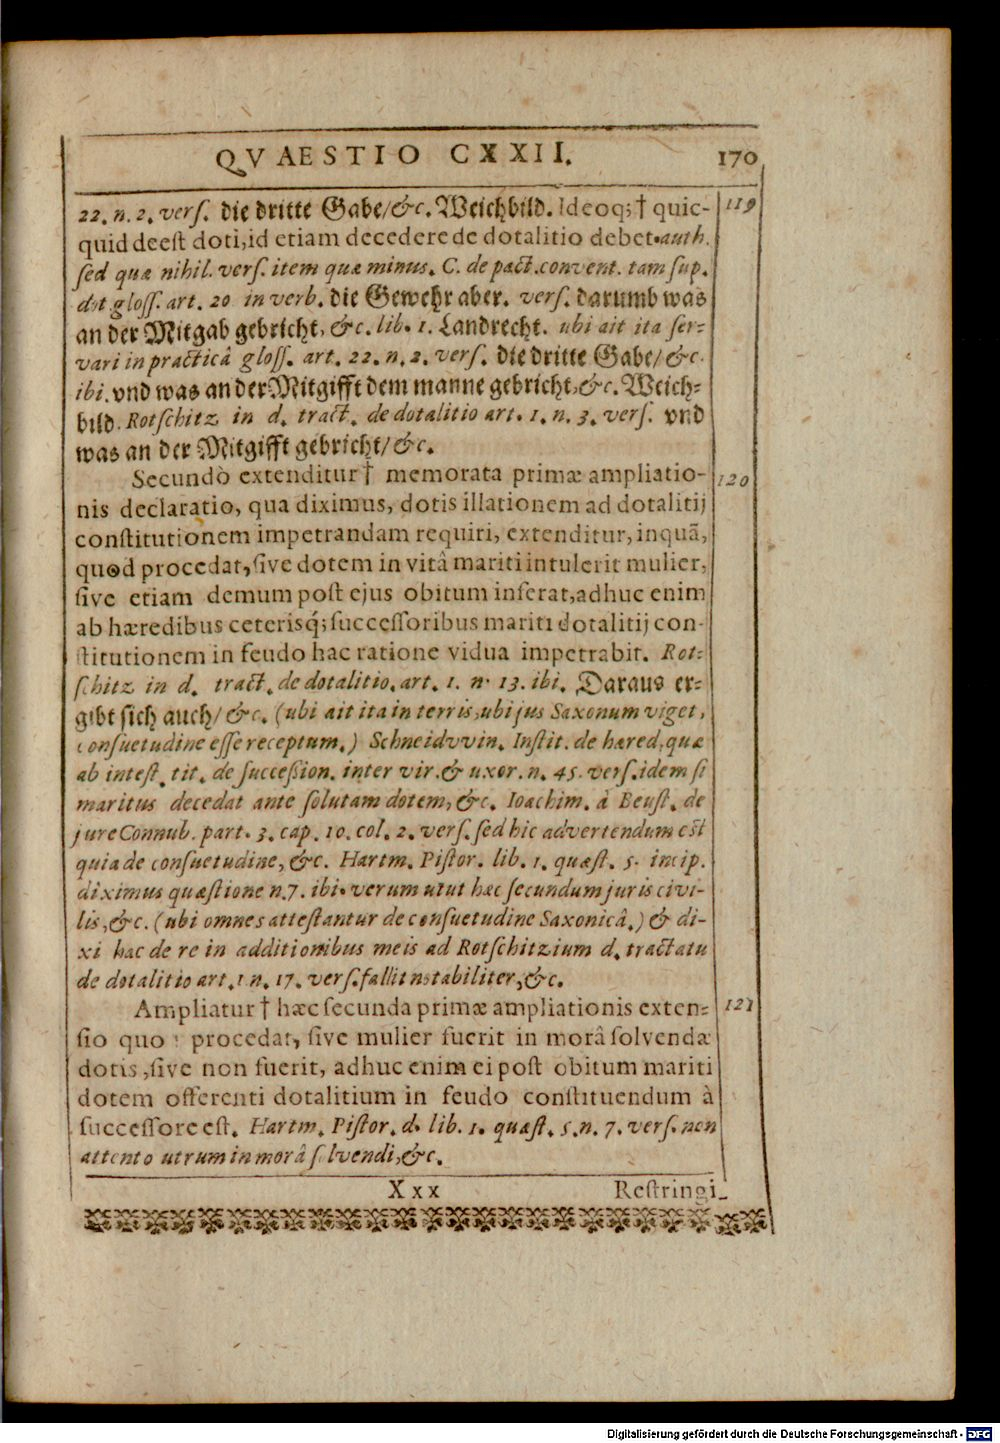 QVAESTIO CXXII. 170
22. n. 2. verſ. die dritte Gabe/&c. Weichbild. Ideoq;† quic- 119
quid deeſt doti, id etiam decedere de dotalitio debet. auth.
ſed quæ nihil. verſ. item quæ minus. C. de pact. convent. tam ſup.
dict. gloſſ. art. 20 in verb. die Gewehr aber. verſ. darumb was
an der Mitgab gebricht, &c. lib. 1. Landrecht. ubi ait ita ſer-
vari in practicâ gloſſ. art. 22. n. 2. verſ. die dritte Gabe/&c.
ibi. vnd was an der Mitgifft dem manne gebricht, &c. Weich-
bild. Rotſchitz in d. tract. de dotalitio art. 1. n. 3. verſ. vnd
was an der Mitgifft gebricht/&c.
Secundò extenditur† memorata primæ ampliatio- 120
nis declaratio, qua diximus, dotis illationem ad dotalitij
conſtitutionem impetrandam requiri, extenditur, inquã,
quod procedat, ſive dotem in vitâ mariti intulerit mulier,
ſive etiam demum poſt ejus obitum inferat, adhuc enim
ab hæredibus ceterisq́; ſucceſſoribus mariti dotalitij con-
ſtitutionem in feudo hac ratione vidua impetrabit. Rot-
ſchitz in d. tract. de dotalitio. art. 1. n. 13. ibi. Daraus er-
gibt ſich auch/&c. (ubi ait ita in terris, ubi jus Saxonum viget,
conſuetudine eſſe receptum.) Schneidvvin. Inſtit. de hæred. quæ
ab inteſt. tit. de ſucceßion. inter vir. & uxor. n. 45. verſ. idem ſi
maritus decedat ante ſolutam dotem, &c. Ioachim. à Beuſt. de
jure Connub. part. 3. cap. 10. col. 2. verſ. ſed hic advertendum eſt
quia de conſuetudine, &c. Hartm. Piſtor. lib. 1. quæſt. 5. incip.
diximus quæſtione n. 7. ibi. verum utut hæc ſecundum juris civi-
lis, &c. (ubi omnes atteſtantur de conſuetudine Saxonicâ.) & di-
xi hac de re in additionibus meis ad Rotſchitzium d. tractatu
de dotalitio art. 1 n. 17. verſ. fallit notabiliter, &c.
Ampliatur† hæc ſecunda primæ ampliationis exten- 121
ſio quo procedat, ſive mulier fuerit in morâ ſolvendæ
dotis, ſive non fuerit, adhuc enim ei poſt obitum mariti
dotem offerenti dotalitium in feudo conſtituendum à
ſucceſſore eſt. Hartm. Piſtor. d. lib. 1. quæſt. 5. n. 7. verſ. non
attento utrum in morâ ſolvendi, &c.
Xxx Reſtringi-
Digitalisierung gefördert durch die Deutsche Forschungsgemeinschaft - DFG